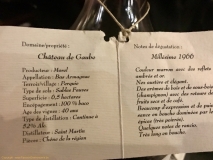 Domaine/propriété :
Château de Gaube
Producteur :
Appellation : Bas Armagnac
Terroir/village : Perquie
Type de sols : Sables Fauves
Superficie : 0,5 hectares
Encépagement : 100 % baco
Age : 40 ans
Type de distillation : Continue à
52% Alc
Distillateur : Saint Martin
Pièces : Chêne de la région
Notes de dégustation :
Millésime 1966
Couleur marron avec des reflets
ambrés et or
Nez mature et élégant.
Des arômes de bois et de sous-bois
(champignon) avec des retours de
fruits secs et de café.
Beaucoup d'expression et de puis-
sance en bouche dominées par les
épices (très poivrée).
Quelques notes de rancio.
Très long en bouche.